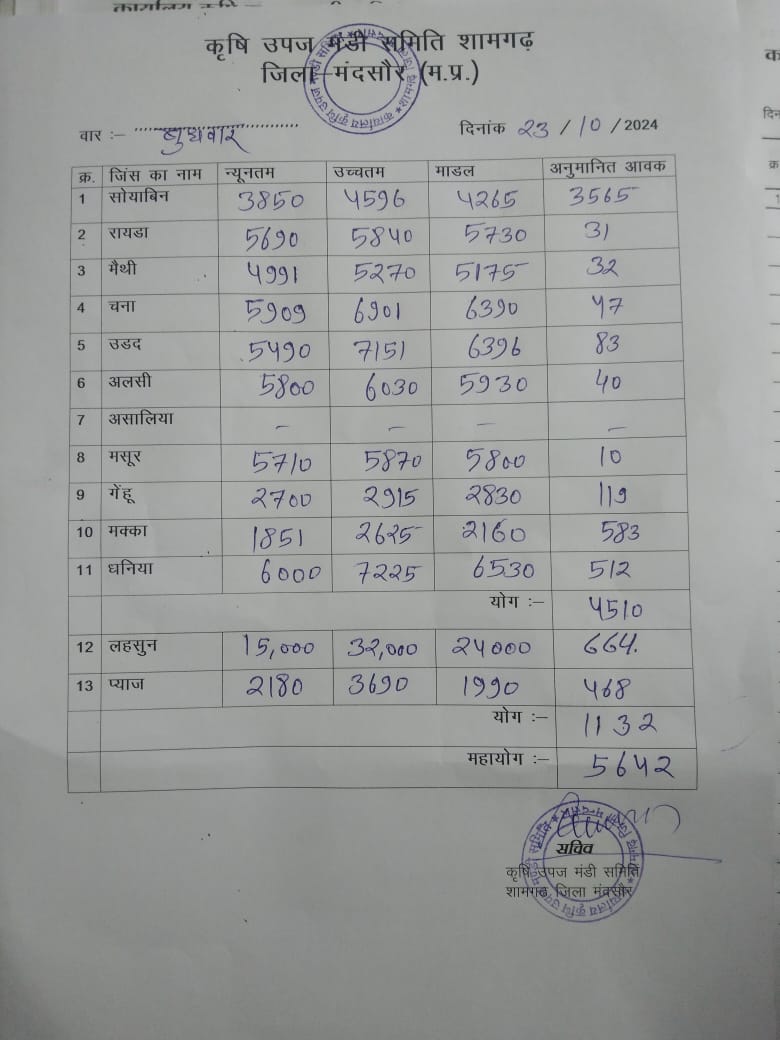 कृषि उपज मंडी समिति शामगढ़
जिला मंदसौर (म.प्र.)
वार :– बुधवार दिनांक 23 / 10 / 2024
क्र. जिंस का नाम न्यूनतम उच्चतम माडल अनुमानित आवक
1 सोयाबिन 3850 4596 4265 3565
2 रायडा 5690 5840 5730 31
3 मैथी 4991 5270 5175 32
4 चना 5909 6901 6390 47
5 उडद 5490 7151 6396 83
6 अलसी 5800 6030 5930 40
7 असालिया – – – –
8 मसूर 5710 5870 5800 10
9 गेंहू 2700 2915 2830 119
10 मक्का 1851 2625 2160 583
11 धनिया 6000 7225 6530 512
योग :– 4510
12 लहसुन 15,000 32,000 24000 664.
13 प्याज 2180 3690 1990 468
योग :– 1132
महायोग :– 5642
सचिव
कृषि उपज मंडी समिति
शामगढ़ जिला मंदसौर